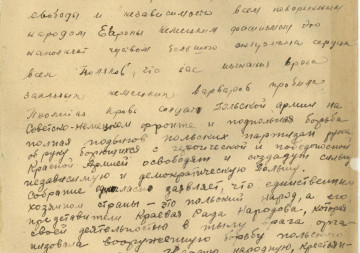 свободы и независимости всем порабощенным
народам Европы немецким фашизмом. Это
наполняет чувством большого энтузиазма сердца
всех Поляков, что час изгнания врага
немецких варваров пробил.
Пролитая кровь солдат Польской армии на
Советско-Немецком фронте и подпольная борьба
полная подвигов польских партизан рука
об руку борющихся с героической и победоносной
Красной Армией освободят и создадут сильную
независимую и демократическую Польшу.
Собрание заявляет, что единственным
хозяином страны – это польский народ, а его
представителем Краевая Рада Народова, которая
своей деятельностью в тылу врага орга-
низовала вооруженную борьбу польского
народную, Крестьян-